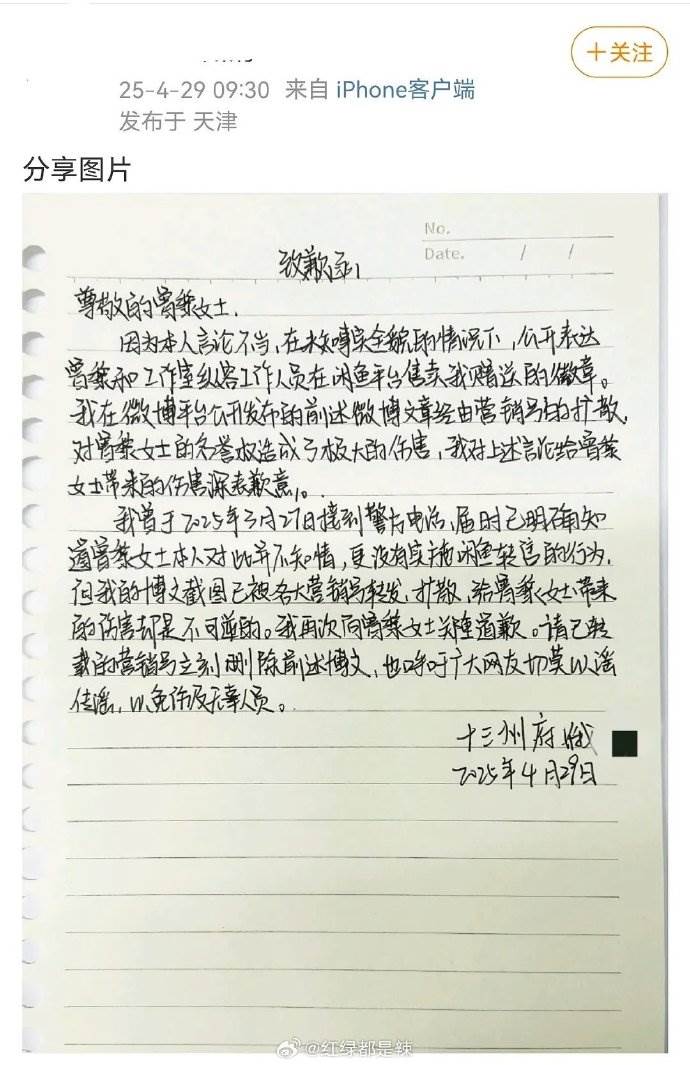 +关注
25-4-29 09:30 来自 iPhone客户端
发布于 天津
分享图片
No.
Date. / /
致歉函
尊敬的曾黎女士.
因为本人言论不当,在未核实全貌的情况下,公开表达
曾黎和工作室纵容工作人员在闲鱼平台售卖我赠送的徽章。
我在微博平台公开发布的前述微博文章经由营销号的扩散,
对曾黎女士的名誉权造成了极大的伤害,我对上述言论给曾黎
女士带来的伤害深表歉意。
我曾于2025年3月27日接到警方电话,届时已明确知
道曾黎女士本人对此并不知情,更没有实施闲鱼转售的行为,
但我的博文截图已被各大营销号转发、扩散,给曾黎女士带来
的伤害却是不可逆的。我再次向曾黎女士郑重道歉。请已转
载的营销号立刻删除前述博文,也呼吁广大网友切莫以谣
传谣,以免涉及无辜人员。
十三州府
2025年4月29日
@红绿都是辣